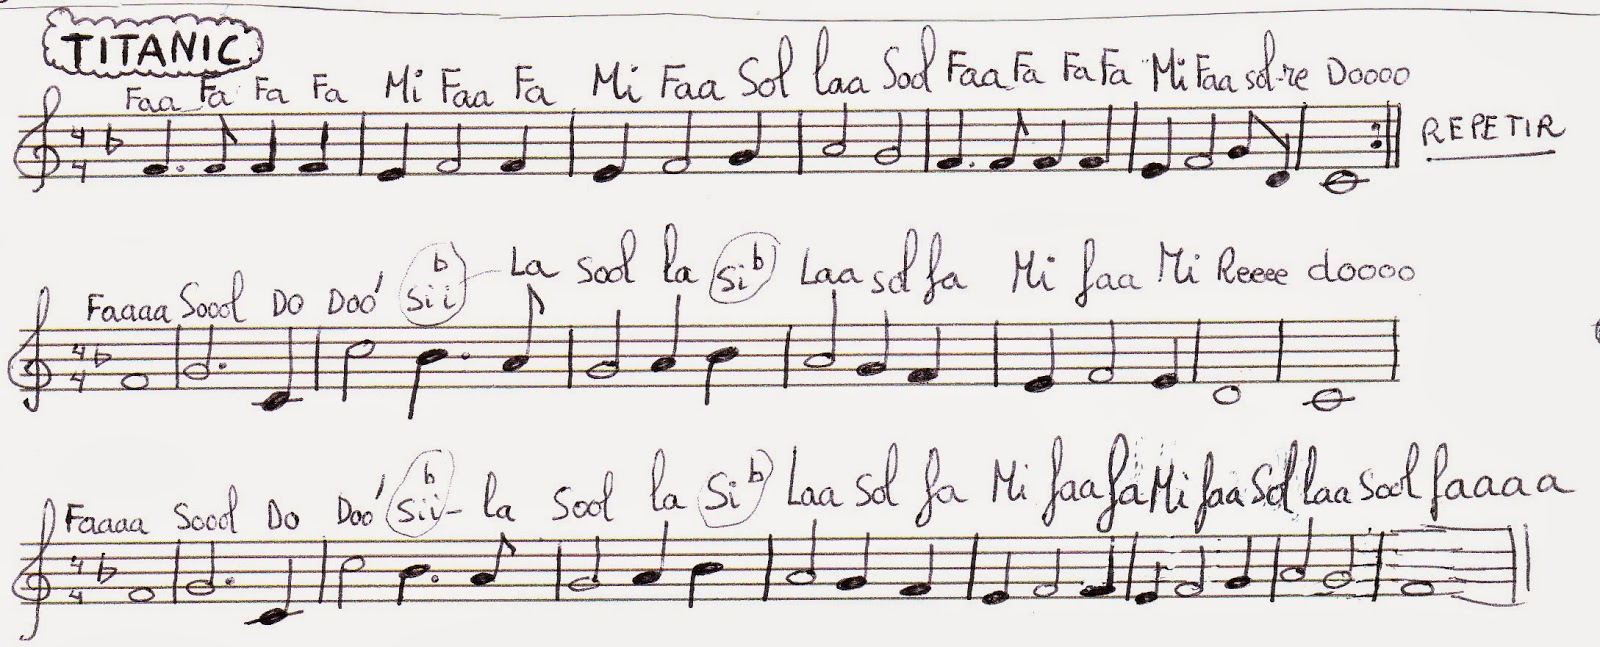 TITANIC
Faa Fa Fa Fa Mi Faa Fa Mi Faa Sol laa Sool Faa Fa Fa Fa Mi Faa sol-re Doooo
4 4
REPETIR
Faaaa Soool Do Doó Sii b La Sool la Si b Laa sol fa Mi faa Mi Reeee doooo
4 4
Faaaa Soool Do Doó Sii b - la Sool la Si b Laa Sol fa Mi faa fa Mi faa Sol laa Sool faaaa
4 4